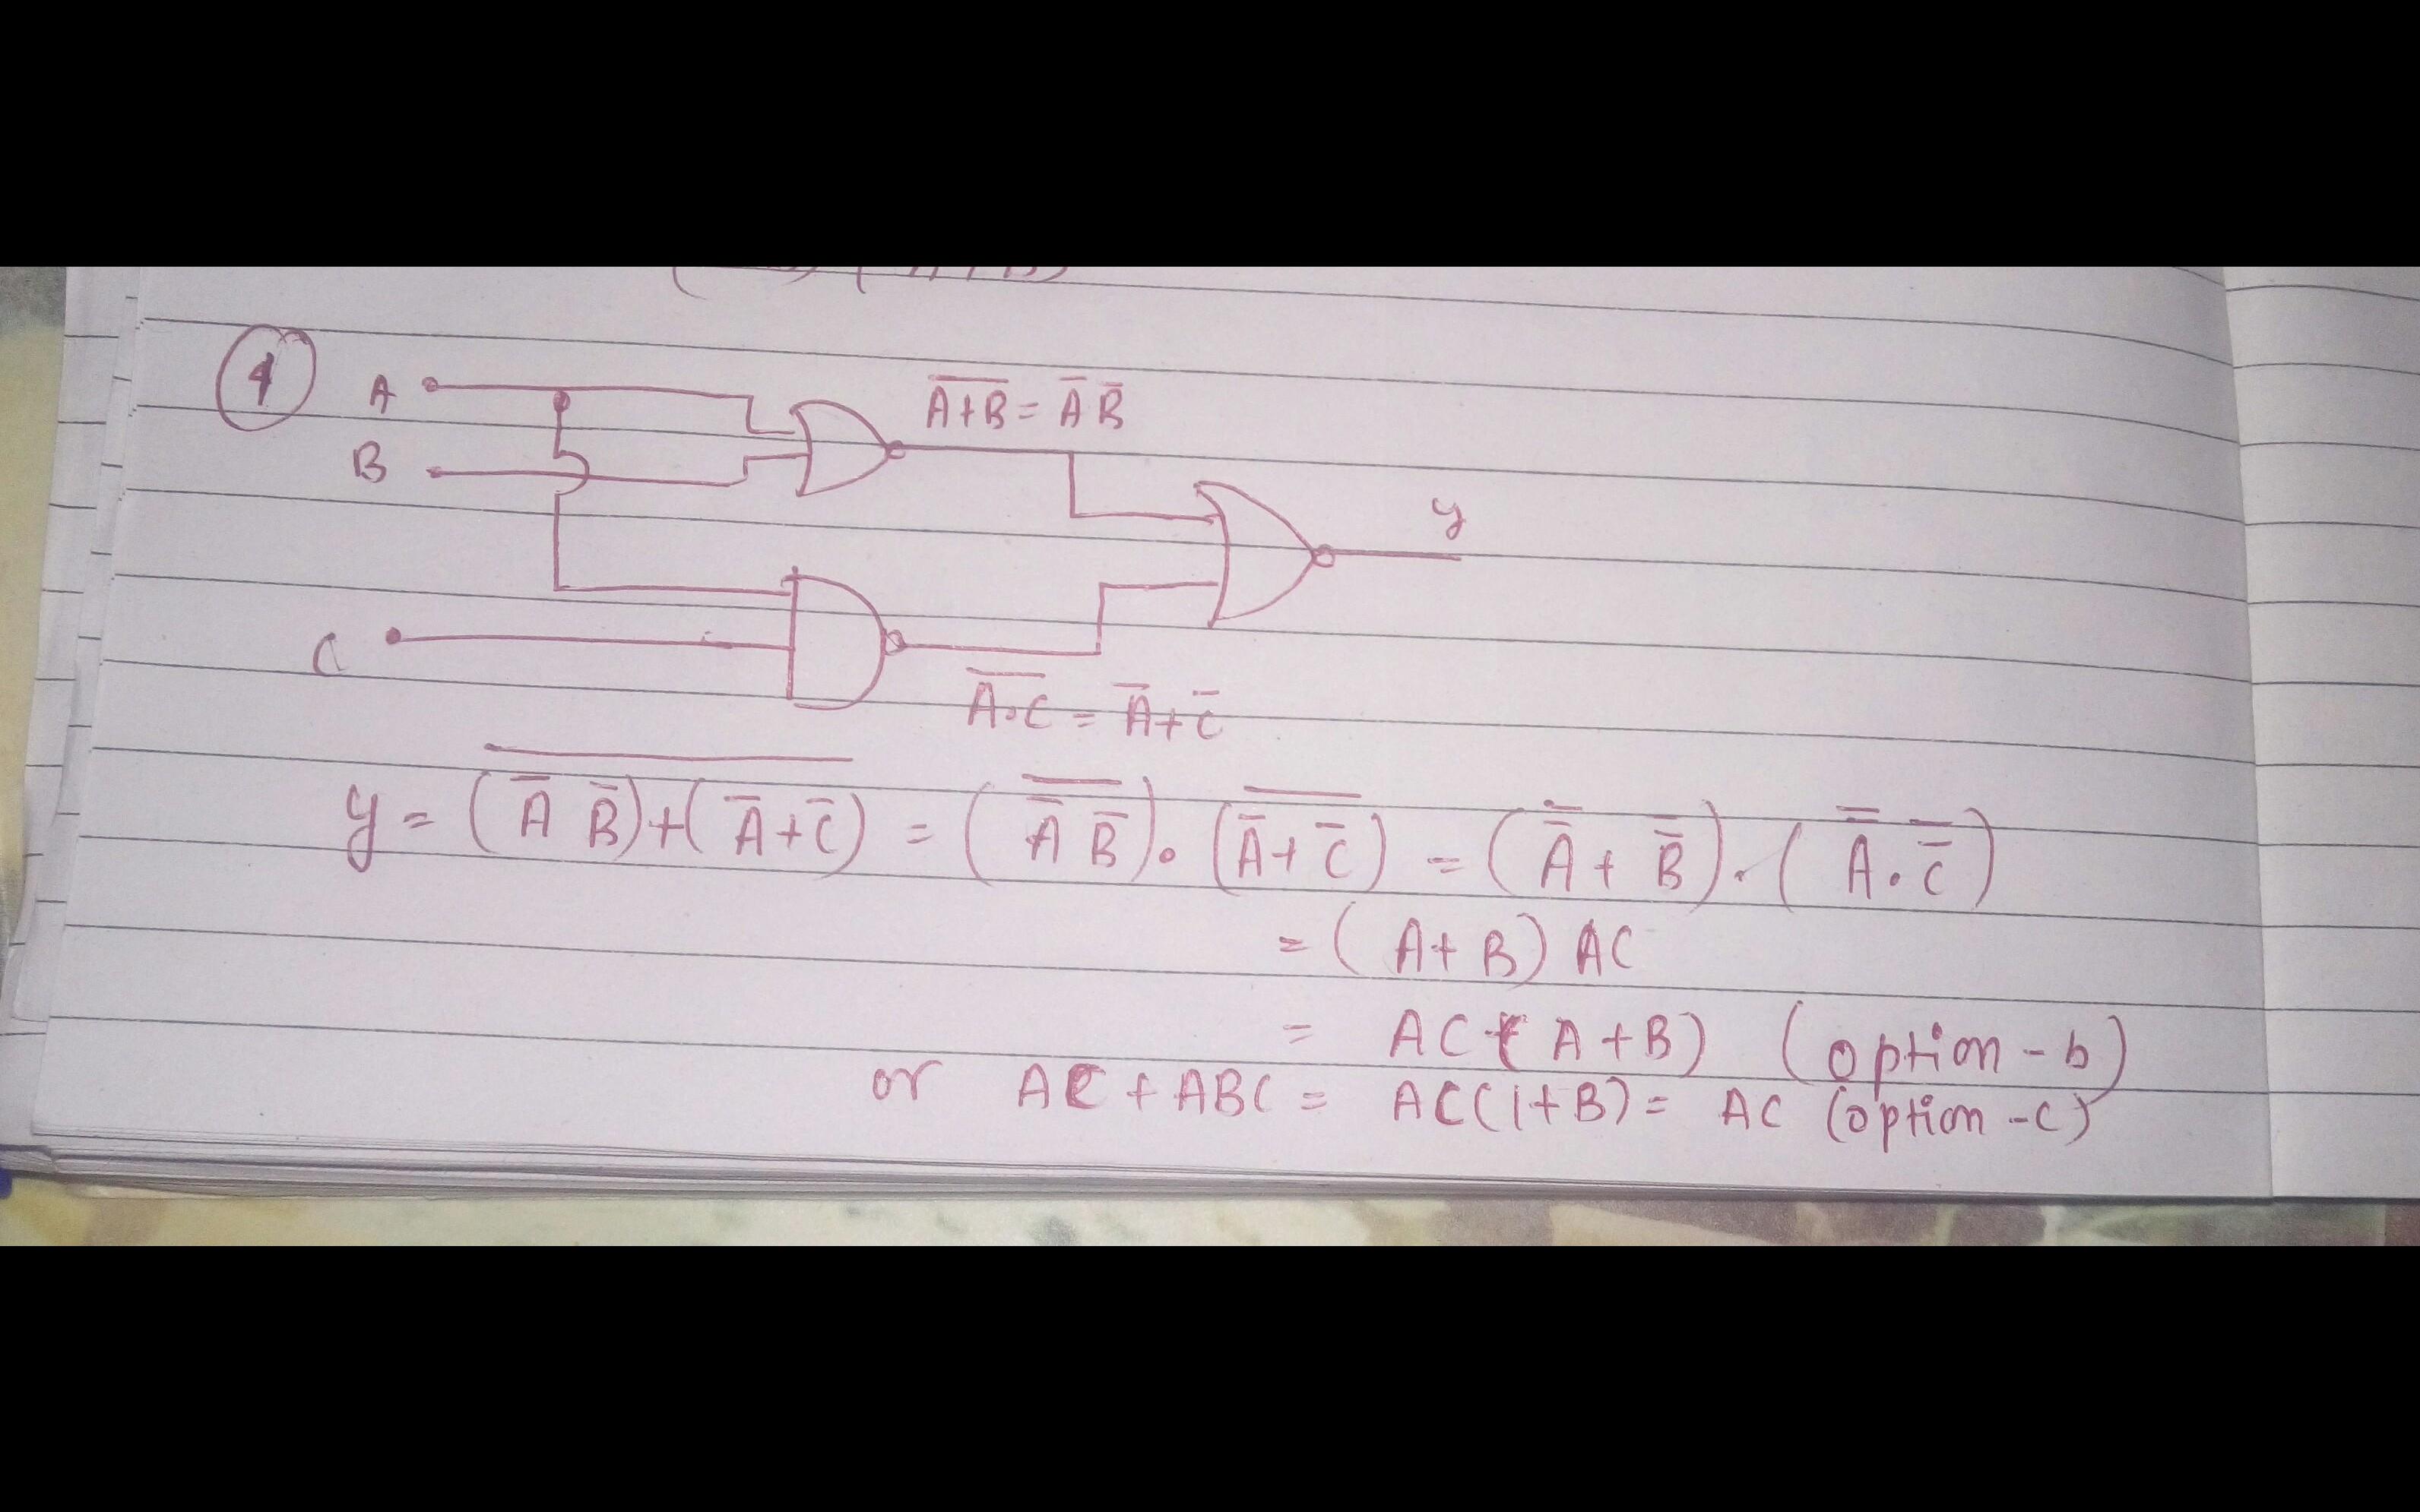 ④
A
B
C
y
A̅+̅B̅ = A̅ B̅
A̅.̅C̅ = A̅+C̅
y = \overline{(A̅ B̅)+(A̅+C̅)} = (\overline{A̅ B̅}).(\overline{A̅+C̅}) = (A̿ + B̿).(A̿.C̿)
= (A+B) AC
= AC(A+B) (option-b)
or AC + ABC = AC(1+B) = AC (option-c)